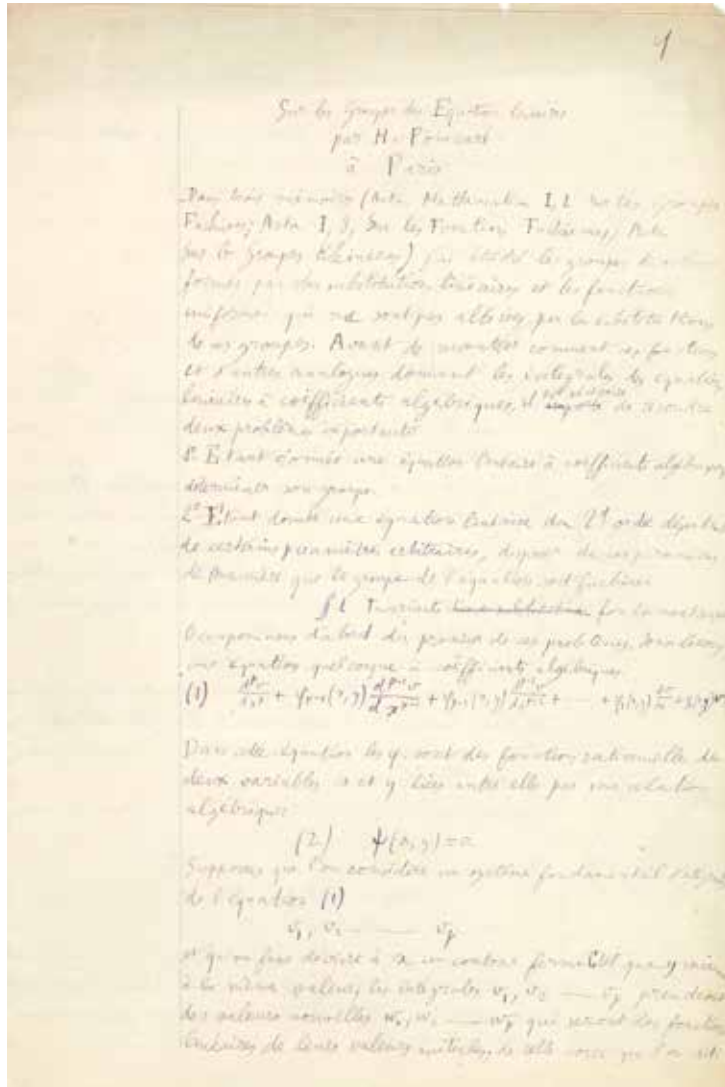 1
Sur les Groupes des Equations linéaires
par H. Poincaré
à Paris
Dans trois mémoires (Acta Mathematica I, 1. Sur les groupes
Fuchsiens; Acta I, 3, Sur les Fonctions Fuchsiennes; Acta
Sur les Groupes Kleinéens) j'ai étudié les groupes
formés par des substitutions linéaires et les fonctions
uniformes qui ne sont pas altérées par les substitutions
de ces groupes. Avant de montrer comment ces fonctions
et d'autres analogues donnent les intégrales des équations
linéaires à coefficients algébriques, il est nécessaire de résoudre
deux problèmes importants
1º Etant donnée une équation linéaire à coefficients algébriques
déterminer son groupe.
2º Etant donnée une équation linéaire du 2d ordre dépendant
de certains paramètres arbitraires, disposer de ces paramètres
de manière que le groupe de l'équation soit fuchsien.
§ 1. Invariants
Occupons nous d'abord du premier de ces problèmes,
une équation quelconque à coefficients algébriques.
(1) d^p v/dx^p + φp-1(x,y) d^p-1 v/dx^p-1 + φp-2(x,y) d^p-2 v/dx^p-2 + ---- + φ1(x,y) dv/dx + φ0(x,y) v
Dans cette équation les φ sont des fonctions rationnelles de
deux variables x et y liées entre elles par une relation
algébrique:
(2) ψ(x,y) = 0
Supposons que l'on considère un système fondamental d'intégrales
de l'équation (1)
v1, v2 ---- vp
et qu'on fasse décrire à x un contour fermé tel que y revienne
à la même valeur, les intégrales v1, v2 ---- vp prendront
des valeurs nouvelles w1, w2 ---- wp qui seront des fonctions
linéaires de leurs valeurs initiales, de telle sorte que l'on ait: